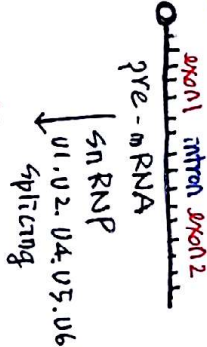 exon1 intron exon2
pre-mRNA
snRNP
U1.U2.U4.U5.U6
splicing